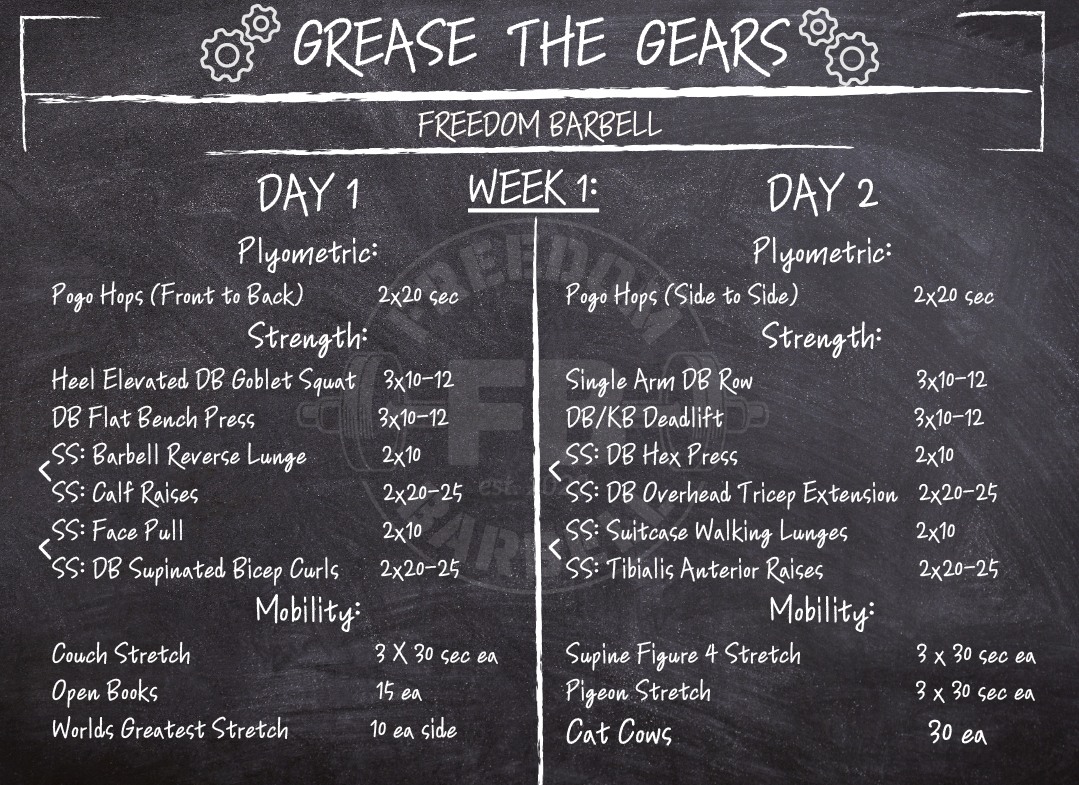 GREASE THE GEARS
FREEDOM BARBELL
WEEK 1:
DAY 1
Plyometric:
Pogo Hops (Front to Back) 2x20 sec
Strength:
Heel Elevated DB Goblet Squat 3x10-12
DB Flat Bench Press 3x10-12
SS: Barbell Reverse Lunge 2x10
SS: Calf Raises 2x20-25
SS: Face Pull 2x10
SS: DB Supinated Bicep Curls 2x20-25
Mobility:
Couch Stretch 3 X 30 sec ea
Open Books 15 ea
Worlds Greatest Stretch 10 ea side
DAY 2
Plyometric:
Pogo Hops (Side to Side) 2x20 sec
Strength:
Single Arm DB Row 3x10-12
DB/KB Deadlift 3x10-12
SS: DB Hex Press 2x10
SS: DB Overhead Tricep Extension 2x20-25
SS: Suitcase Walking Lunges 2x10
SS: Tibialis Anterior Raises 2x20-25
Mobility:
Supine Figure 4 Stretch 3 x 30 sec ea
Pigeon Stretch 3 x 30 sec ea
Cat Cows 30 ea
FREEDOM
FB
est.
BARBELL